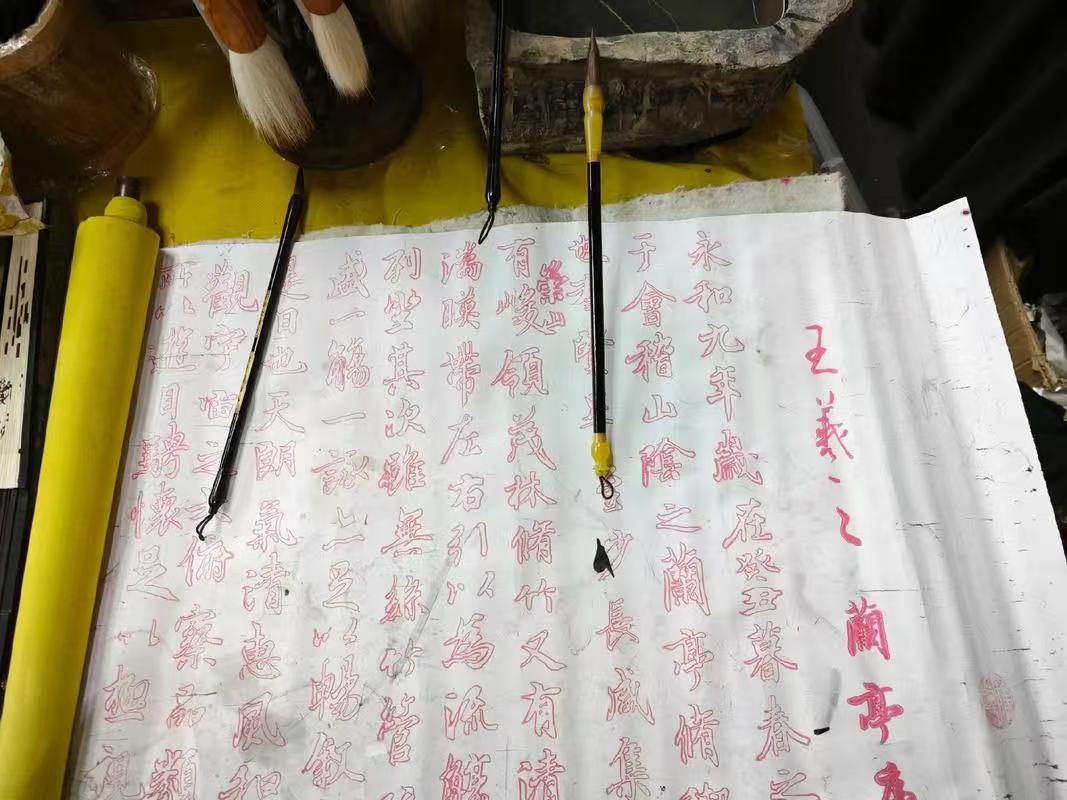 王羲之 蘭亭
永和九年歲在癸丑暮春之
于會稽山陰之蘭亭脩
少長咸集
有崇山峻領茂林脩竹又有清
湍暎帶左右引以為流觴
列坐其次雖無絲竹管
盛一觴一詠亦足以暢敘
是日也天朗氣清惠風和
觀宇宙之大俯察品類
所以遊目騁懷足以極視